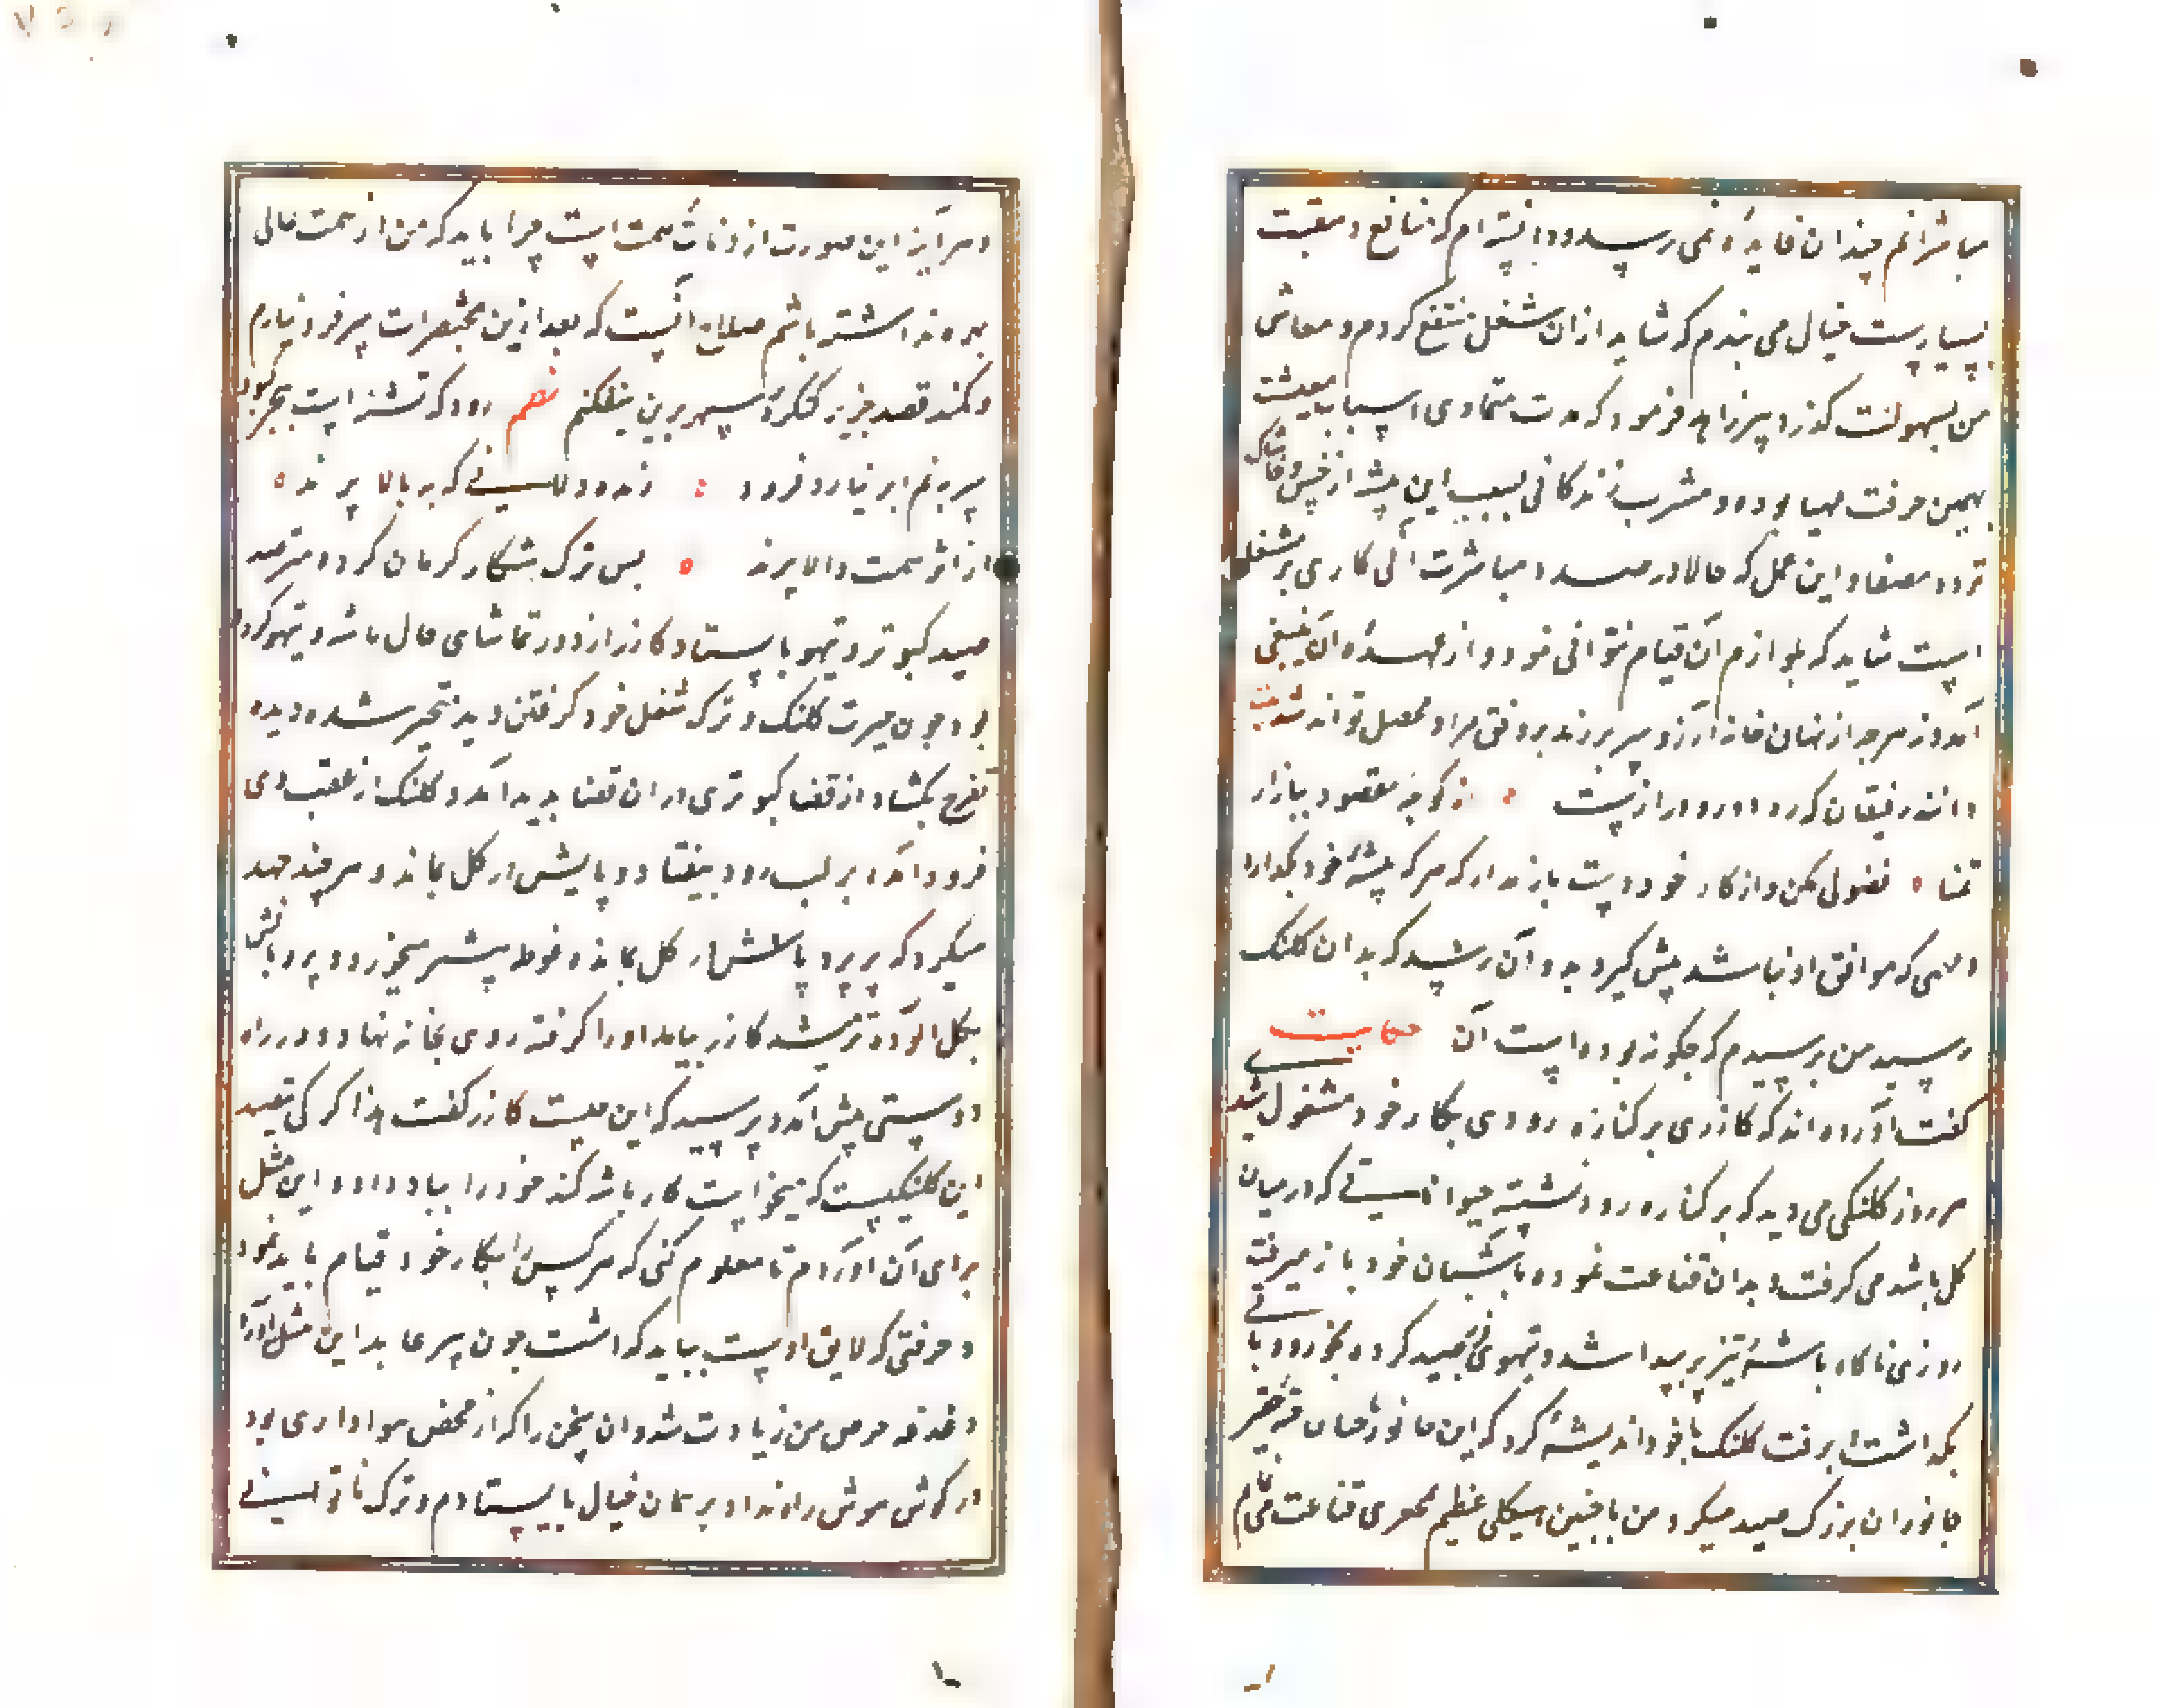 مباشر انم چندان فایده نمی رسد و دانسته ام که منافع و منقبت
بسیارست خیال می بندم که شاید ازان شغل منتفع کردم و معاش
من بسهولت کذرد پیر زاهد فرمود که مدت متمادی اسباب معیشت
بهمین حرفت مهیا بوده و مشرب زندکانی بسبب این پیشه از خس و خاشاک
تردد مصفا و این عمل که حالا در صدد مباشرت آنی کاری پر مشغله
است شاید که بلوازم آن قیام نتوانی نمود و از عهده آن تفصی
آمد و نه هرچه از نهان خانه آرزو سر برزند بر وفق مراد محصل تواند شد
دانند رفیقان که ره دور و درازیست از کوچه مقصود ببازار
تمنا فضولی مکن و از کار خود دست باز مدار که هر که پیشه خود بکذارد
و مهمی که موافق او نباشد پیش کیرد بدو آن رسد که بدان کلنک
رسید من پرسیدم که چکونه بوده است آن حکایت
کفت آورده اند که کازری بر کناره رودی بکار خود مشغول شدی
هر روز کلنکی می دید که بر کناره رود نشسته حیواناتی که در میان
کل باشد می کرفت و بدان قناعت نموده باشیان خود باز میرفت
روزی ناکاه باشه تیز پر پیدا شد و تیهوی فربه صید کرده بخورد و باقی
بکذاشت و برفت کلنک با خود اندیشه کرد که این جانور بچنان جثه حقیر
جانوران بزرک صید میکرد و من با چنین هیکلی عظیم بمحقری قناعت می کنم
و هر آینه این صورت از دنائت همت است چرا باید که من از همت عالی
بهره نداشته باشم صلاح آنست که بعد ازین بمحقرات سر فرو نیارم
و کمند قصد جز بر کنکره سپهر برین نیفکنم نظم رود که تشنه است ببحر کبود
سر به نم ابر نیارد فرود زنده دلانی که به بالا پرند
از اثر همت والا پرند پس ترک شکار کرمان کرد و مترصد
صید کبوتر و تیهو بایستاد کازر از دور تماشای حال باشه و تیهو کرده
بود چون حیرت کلنک و ترک شغل خود کرفتن دید متحیر شده دیده
تفرج بکشاد از قضا کبوتری دران فضا پدید آمد و کلنک از عقب وی
فرود آمده بر لب رود بیفتاد و پایش در کل بماند و هر چند جهد
میکرد که بر پرد پایش در کل بمانده غوطه بیشتر میخورد و پر و بالش
بکل آلوده تر میشد کازر بیامد او را کرفته روی بخانه نهاد و در راه
دوستی پیش آمد و پرسید که این چیست کازر کفت هذا کرکی یصید
این کلنکیست که میخواست کار باشه کند خود را بباد داد و این مثل
برای آن آوردم تا معلوم کنی که هر کس را بکار خود قیام باید نمود
و حرفتی که لایق او نیست بباید کذاشت چون پیر عابد این مثل آورد
دغدغه حرص من زیادت شد و ان سخن را که از محض هواداری بود
در کوش هوش راه نداد بر همان خیال بایستادم و ترک نانوایی